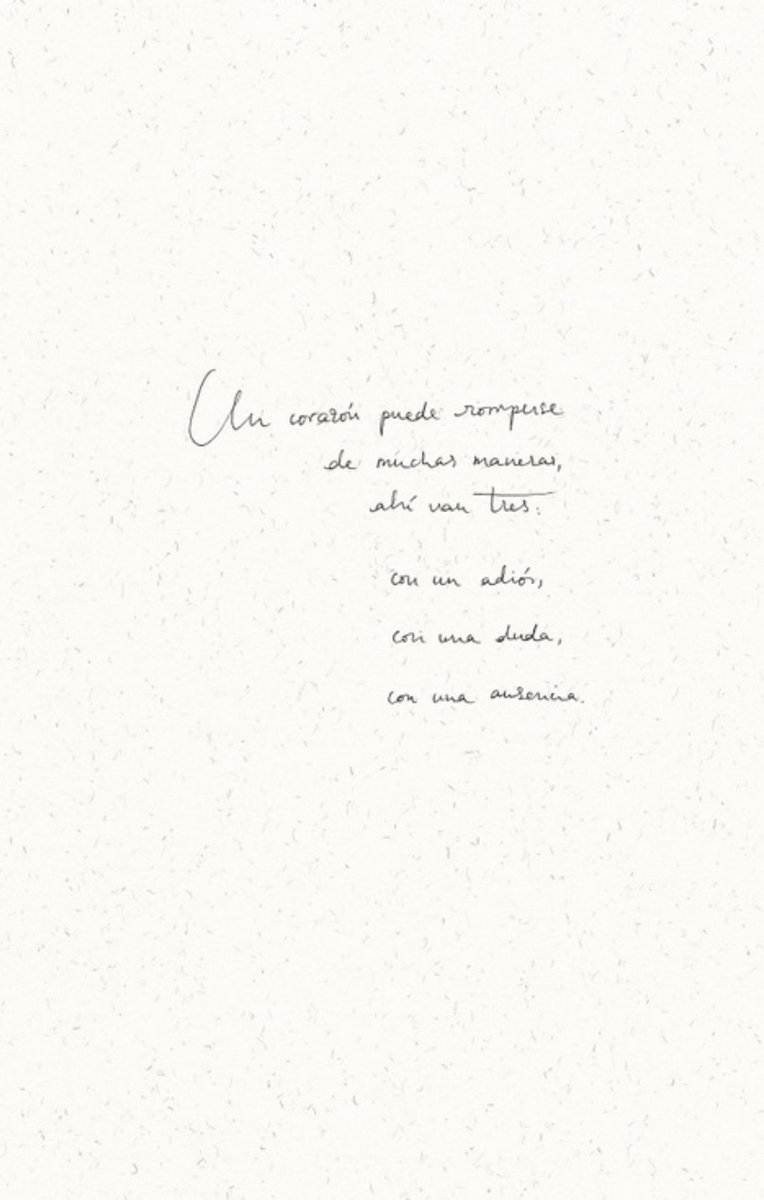 Un corazón puede romperse
de muchas maneras,
ahí van tres:
con un adiós,
con una duda,
con una ausencia.